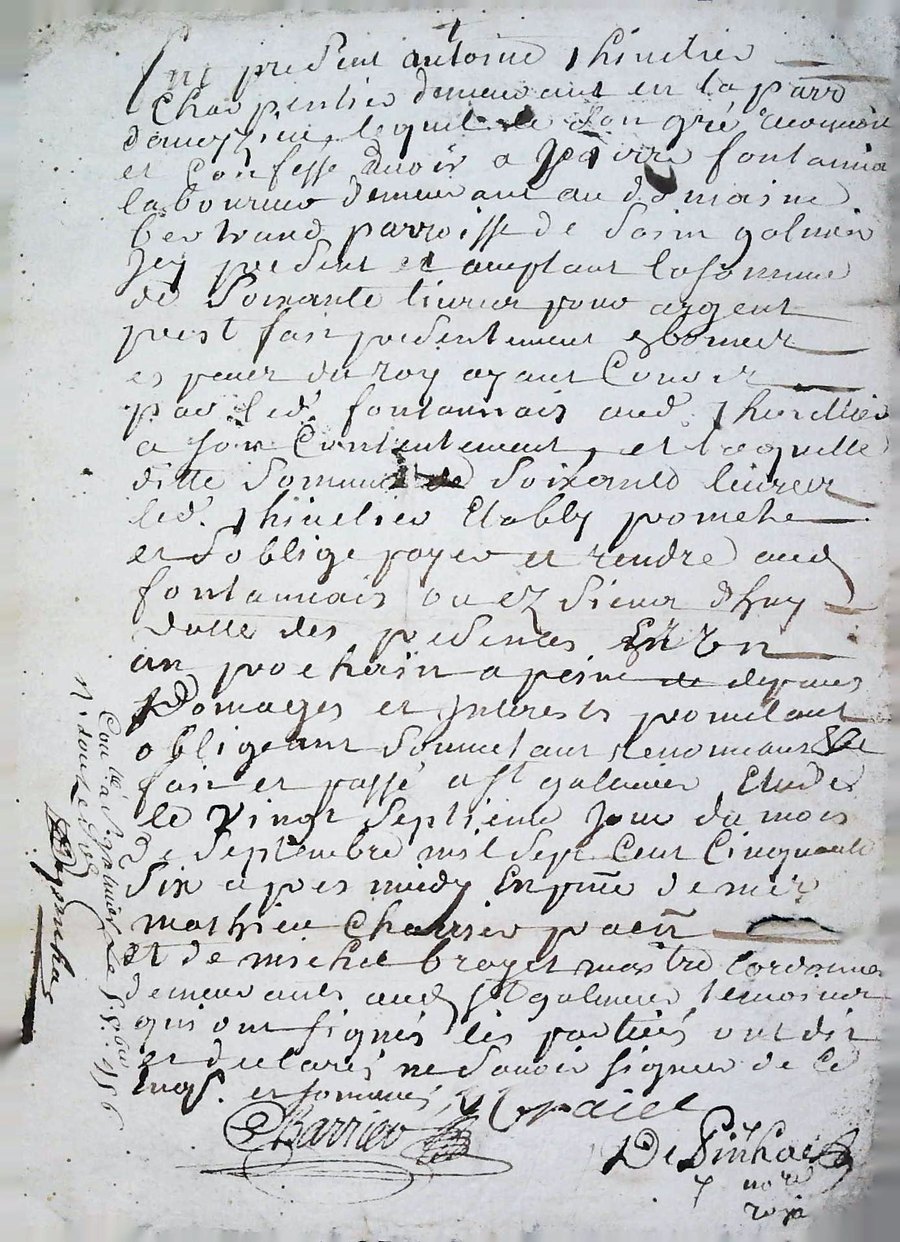 fut present antoine thivelier
Charpentier demeurant en la parr
lequel de son gré
et Confesse devoir a pierre fontannais
laboureur demeurant au domaine
bertrand parroisse de Saint galmier
Icy present et aceptant la somme
de Soixante livres pour argent
prest fait presentement
cours du roy ayant
par led. fontannais aud. thivellier
a son Contentement, et laquelle
ditte Somme de Soixante livres
led. thivelier Etably promet
et s'oblige payer et rendre aud
fontannais ou ez siens d'huy
datte des presentes En Un
an prochain a peine de depans
Domages et interests prometant
obligeant Soumetant Renonceant &c
fait et passé a St galmier Etude
le vingt Septieme jour du mois
de Septembre mil Sept Cent Cinquante
Six apres midy En pnce de me
mathieu Charrier
et de michel broyet maitre Cordonnier
demeurants aud St galmier temoins
qui ont signés les parties ont dit
et declarés ne Savoir signer de Ce
enqs. et sommés
Charrier
De Pinhac
nore
royal
Conlé a St galmier Le
R douze sols